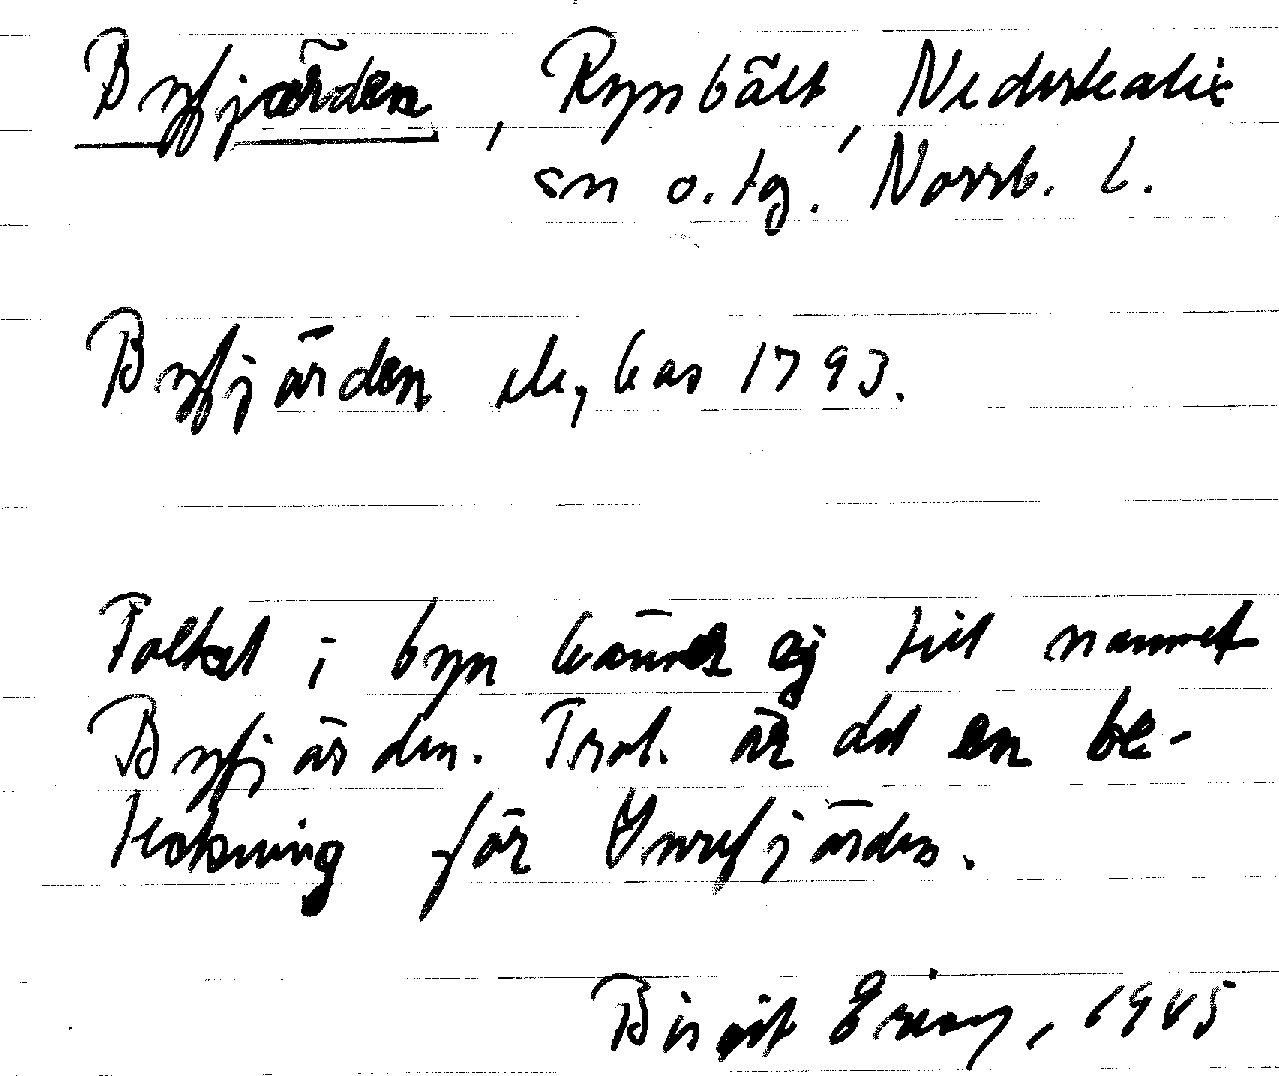 Byfjärden, Rynbält, Nederkalix
sn o. tg. Norrb. l.
Byfjärden ek, kas 1793.
Folket i byn känner ej till namnet
Byfjärden. Trol. är det en be-
teckning för Ynrefjärden.
Birgit Ericsson, 1945